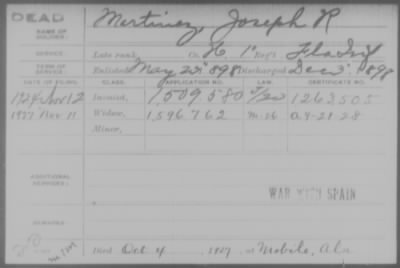 DEAD
NAME OF SOLDIER: Martinez, Joseph R
SERVICE: Late rank, Co. H, 1" Reg't Fla Inf
TERM OF SERVICE: Enlisted May 23" 1898 Discharged Dec 3" 1898
DATE OF FILING. CLASS. APPLICATION NO. LAW. CERTIFICATE NO.
1924 Nov 12 Invalid, 1,509,580 1262505
1927 Nov 11 Widow, 1,596,762 M-26 A-4-21-28
Minor,
ADDITIONAL SERVICES:
WAR WITH SPAIN
REMARKS:
Died Oct 4 1927, at Mobile, Ala